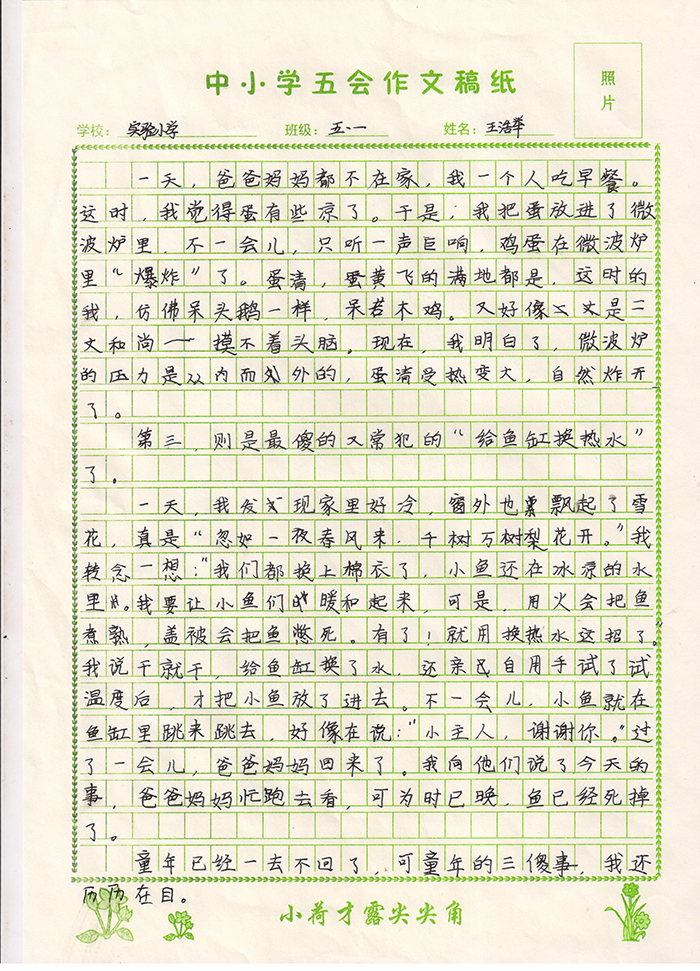 中小学五会作文稿纸
照片
学校： 实验小学 班级： 五.一 姓名： 王浩举
一天，爸爸妈妈都不在家，我一个人吃早餐。
这时，我觉得蛋有些凉了。于是，我把蛋放进了微
波炉里，不一会儿，只听一声巨响，鸡蛋在微波炉
里“爆炸”了。蛋清，蛋黄飞的满地都是，这时的
我，仿佛呆头鹅一样，呆若木鸡。又好像丈是二
文和尚——摸不着头脑。现在，我明白了，微波炉
的压力是从内而外的，蛋清受热变大，自然炸开
了。
第三，则是最傻的又常犯的“给鱼缸换热水”
了。
一天，我发现家里好冷，窗外也飘起了雪
花，真是“忽如一夜春风来，千树万树梨花开。”我
转念一想：“我们都换上棉衣了，小鱼还在冰凉的水
里。我要让小鱼们暖和起来，可是，用火会把鱼
煮熟，盖被会把鱼憋死。有了！就用换热水这招了。
我说干就干，给鱼缸换了水，还亲自用手试了试
温度后，才把小鱼放了进去。不一会儿，小鱼就在
鱼缸里跳来跳去，好像在说：“小主人，谢谢你。”过
了一会儿，爸爸妈妈回来了。我向他们说了今天的
事，爸爸妈妈忙跑去看，可为时已晚，鱼已经死掉
了。
童年已经一去不回了，可童年的三傻事，我还
历历在目。
小荷才露尖尖角